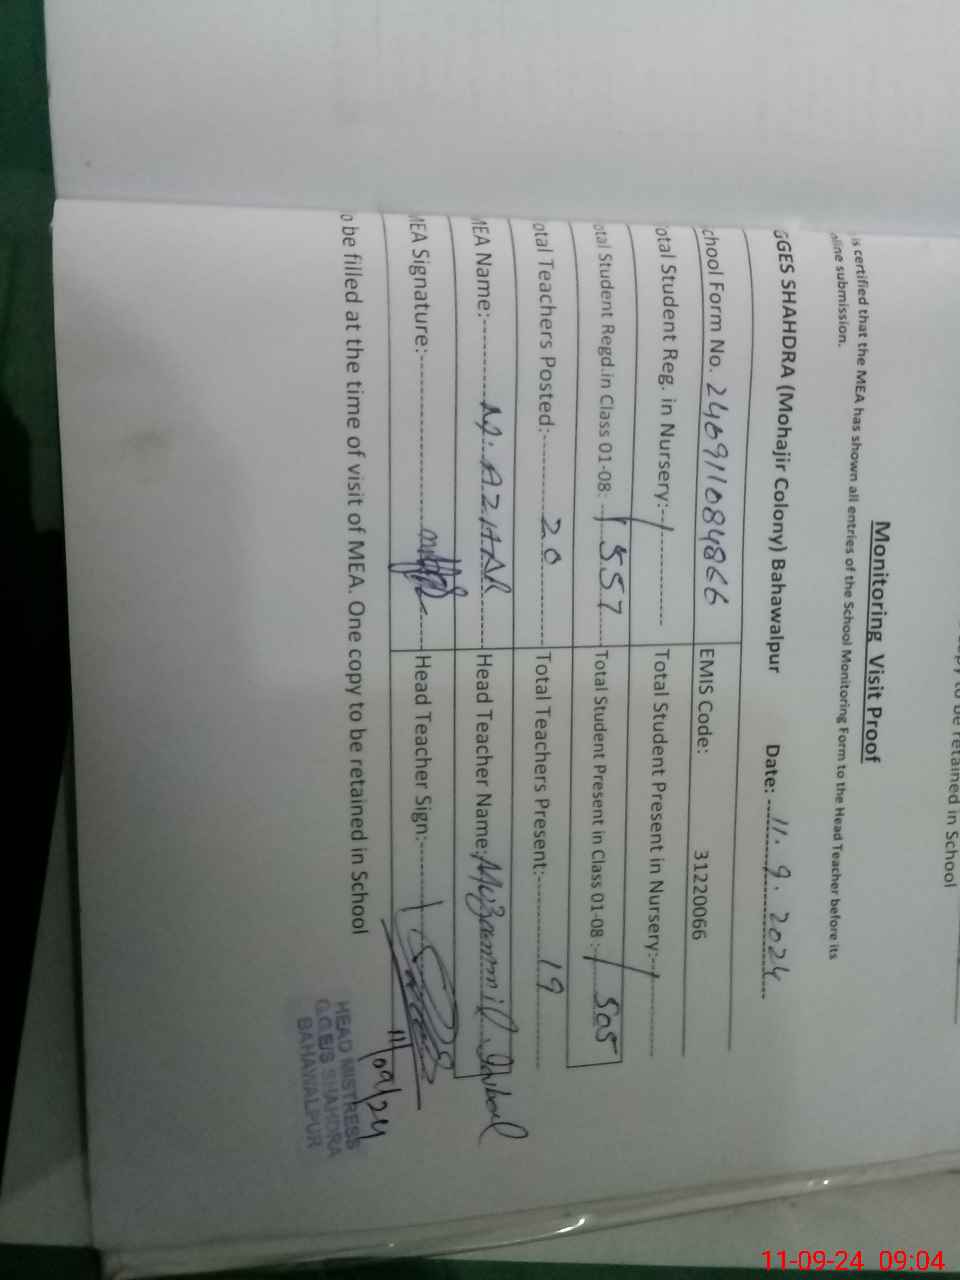 py to be retained in School
Monitoring Visit Proof
is certified that the MEA has shown all entries of the School Monitoring Form to the Head Teacher before its
nline submission.
GGES SHAHDRA (Mohajir Colony) Bahawalpur Date: 11.9.2024
chool Form No. EMIS Code: 31220066
otal Student Reg. in Nursery: / Total Student Present in Nursery: /
otal Student Regd.in Class 01-08: / 557 Total Student Present in Class 01-08 : / 505
otal Teachers Posted: 20 Total Teachers Present: 19
MEA Name: M. AZHAR Head Teacher Name: Muzammil Iqbal
MEA Signature: Head Teacher Sign:
11/09/24
o be filled at the time of visit of MEA. One copy to be retained in School
HEAD MISTRESS
G.G.E/S SHAHDRA
BAHAWALPUR
11-09-24 09:04